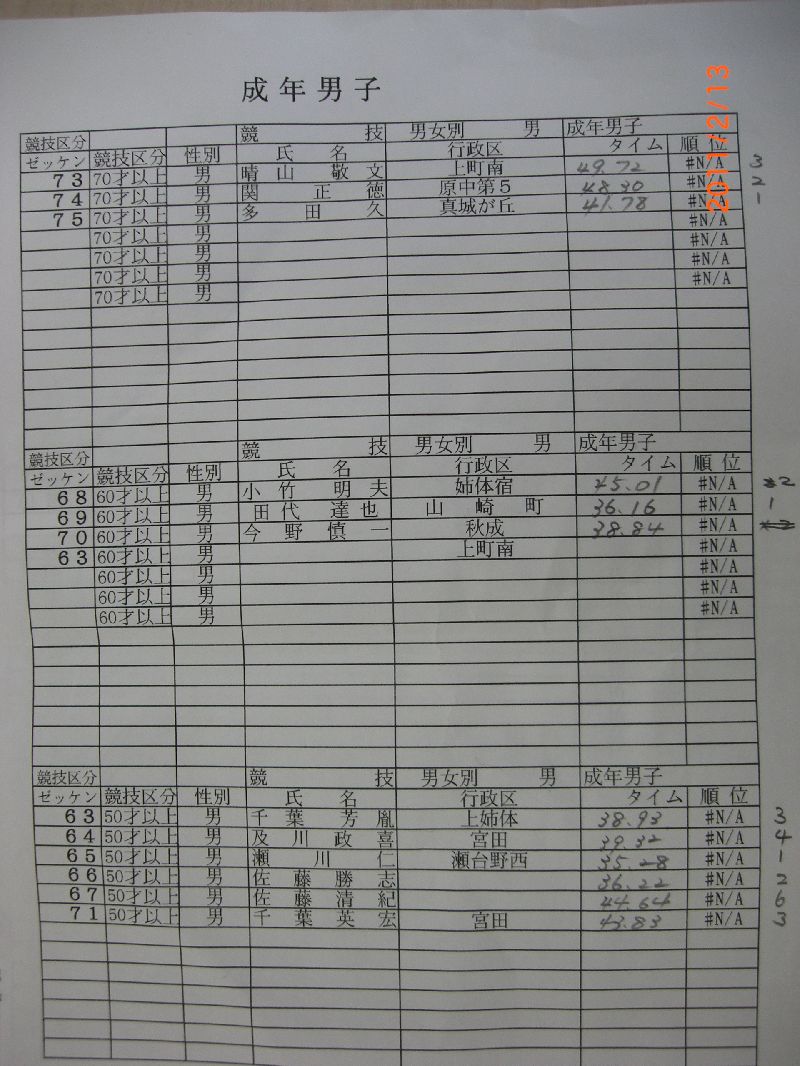 成年男子
2011/12/13
競技区分 競技 男女別 男 成年男子
ゼッケン 競技区分 性別 氏名 行政区 タイム 順位
73 70才以上 男 晴山敬文 上町南 49.72 #N/A 3
74 70才以上 男 関正徳 原中第5 48.30 #N/A 2
75 70才以上 男 多田久 真城が丘 41.78 #N/A 1
70才以上 男 #N/A
70才以上 男 #N/A
70才以上 男 #N/A
70才以上 男 #N/A
競技区分 競技 男女別 男 成年男子
ゼッケン 競技区分 性別 氏名 行政区 タイム 順位
68 60才以上 男 小竹明夫 姉体宿 45.01 #N/A 2
69 60才以上 男 田代達也 山崎町 36.16 #N/A 1
70 60才以上 男 今野慎一 秋成 38.84 #N/A
63 60才以上 男 上町南 #N/A
60才以上 男 #N/A
60才以上 男 #N/A
60才以上 男 #N/A
競技区分 競技 男女別 男 成年男子
ゼッケン 競技区分 性別 氏名 行政区 タイム 順位
63 50才以上 男 千葉芳胤 上姉体 38.93 #N/A 3
64 50才以上 男 及川政喜 宮田 39.32 #N/A 4
65 50才以上 男 瀬川仁 瀬台野西 35.28 #N/A 1
66 50才以上 男 佐藤勝志 36.22 #N/A 2
67 50才以上 男 佐藤清紀 44.64 #N/A 6
71 50才以上 男 千葉英宏 宮田 43.83 #N/A 3